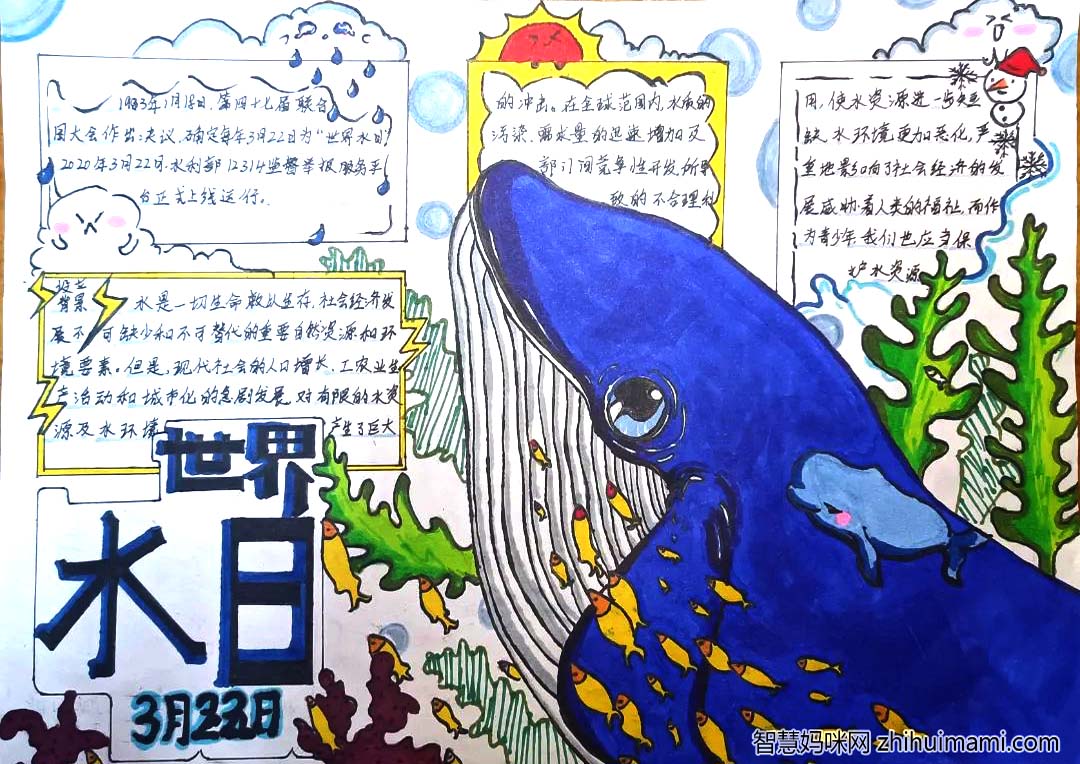 1993年1月18日,第四十七届联合
国大会作出决议,确定每年3月22日为“世界水日”
2020年3月22日水利部12314监督举报服务平
台正式上线运行。
设立
背景
水是一切生命赖以生存,社会经济发
展不可缺少和不可替代的重要自然资源和环
境要素。但是,现代社会的人口增长,工农业生
产活动和城市化的急剧发展,对有限的水资
源及水环境产生了巨大
的冲击。在全球范围内,水质的
污染、需水量的迅速增加及
部门间竞争性开发所导
致的不合理利
用,使水资源进一步短
缺,水环境更加恶化,严
重地影响了社会经济的发
展威胁着人类的福祉。而作
为青少年,我们也应当保
护水资源
世界
水日
3月22日
智慧妈咪网 zhihuimami.com